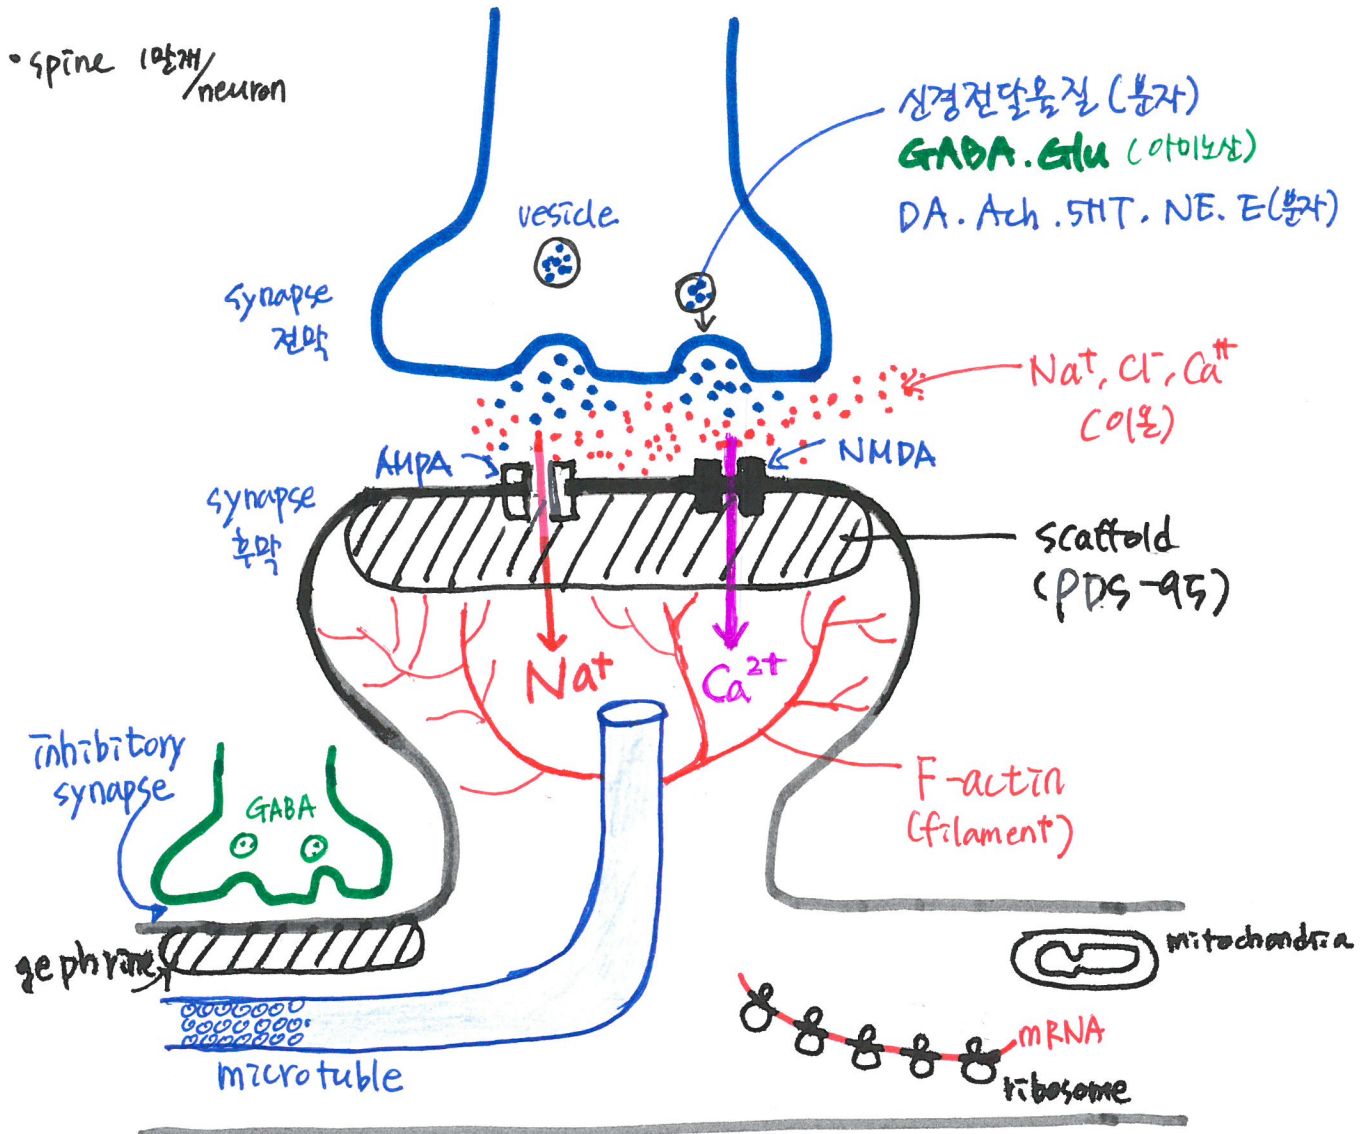 • spine 1만개/neuron
신경전달물질 (분자)
GABA. Glu (아미노산)
DA. Ach. 5HT. NE. E (분자)
vesicle
synapse
전막
Na⁺, Cl⁻, Ca⁺⁺
(이온)
AMPA
NMDA
synapse
후막
scaffold
(PDS-95)
Na⁺
Ca²⁺
inhibitory
synapse
GABA
F-actin
(filament)
gephrine
mitochondria
mRNA
ribosome
microtuble